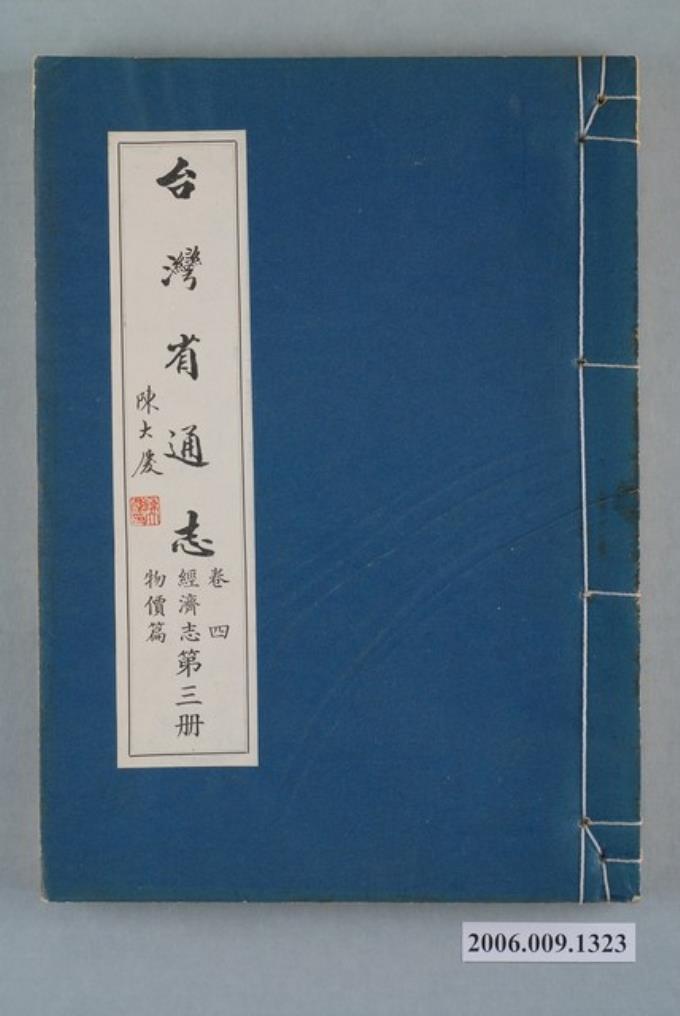 台灣省通志
陳大慶
卷四
經濟志第三册
物價篇
2006.009.1323